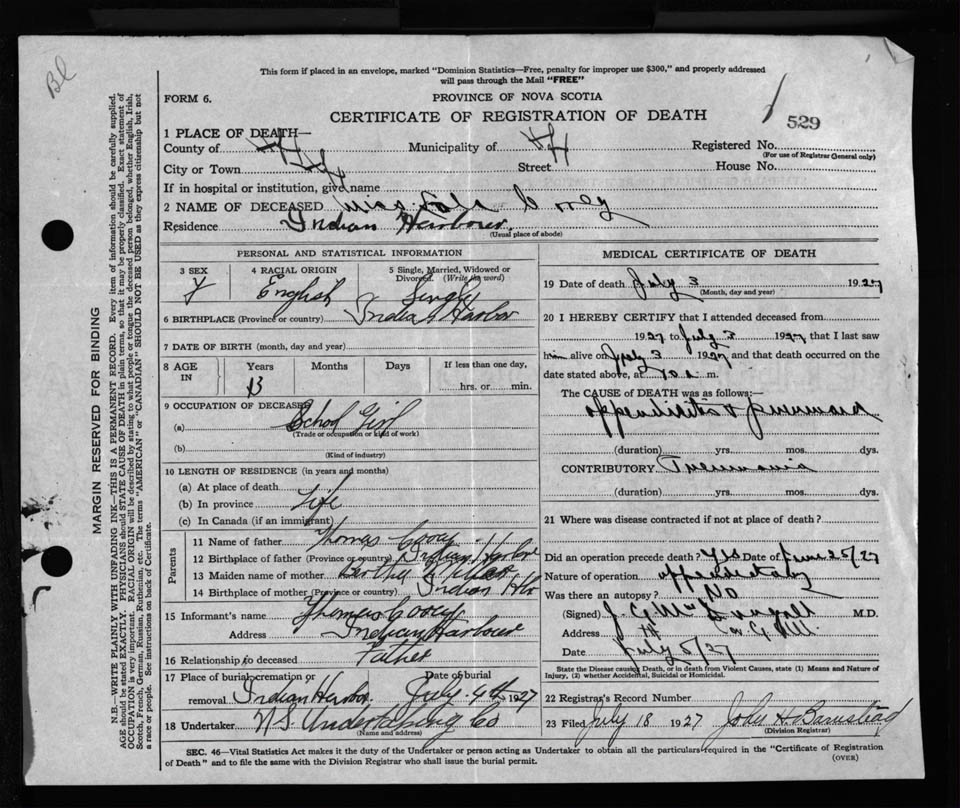 Bl
This form if placed in an envelope, marked "Dominion Statistics—Free, penalty for improper use $300," and properly addressed
will pass through the Mail "FREE"
FORM 6.
PROVINCE OF NOVA SCOTIA
CERTIFICATE OF REGISTRATION OF DEATH
529
1 PLACE OF DEATH—
County of Hfx Municipality of Registered No.
(For use of Registrar General only)
City or Town Street House No.
If in hospital or institution, give name
2 NAME OF DECEASED Miss
Residence Indian Harbour
(Usual place of abode)
PERSONAL AND STATISTICAL INFORMATION
3 SEX 4 RACIAL ORIGIN 5 Single, Married, Widowed or Divorced. (Write the word)
F English Single
6 BIRTHPLACE (Province or country) Indian Harbor
7 DATE OF BIRTH (month, day and year)
8 AGE IN Years Months Days If less than one day,
13 hrs. or min.
9 OCCUPATION OF DECEASED
(a) School Girl
(Trade or occupation or kind of work)
(b)
(Kind of industry)
10 LENGTH OF RESIDENCE (in years and months)
(a) At place of death
(b) In province Life
(c) In Canada (if an immigrant)
Parents
11 Name of father Thomas Covey
12 Birthplace of father (Province or country) Indian Harbor
13 Maiden name of mother Bertha
14 Birthplace of mother (Province or country) Indian Hbr
15 Informant's name Thomas Covey
Address Indian Harbour
16 Relationship to deceased Father
17 Place of burial, cremation or removal Indian Harbor Date of burial July 4th 1927
18 Undertaker N.S. Undertaking Co
(Name and address)
MEDICAL CERTIFICATE OF DEATH
19 Date of death July 3 1927
(Month, day and year)
20 I HEREBY CERTIFY that I attended deceased from
1927 to July 3 1927 that I last saw
him alive on July 3 1927 and that death occurred on the
date stated above, at m.
The CAUSE OF DEATH was as follows:—
appendicitis &
(duration) yrs. mos. dys.
CONTRIBUTORY Pneumonia
(duration) yrs. mos. dys.
21 Where was disease contracted if not at place of death?
Did an operation precede death? Yes Date of June 25/27
Nature of operation
Was there an autopsy? No
(Signed) M.D.
Address
Date July 5/27
State the Disease causing Death, or in death from Violent Causes, state (1) Means and Nature of Injury, (2) whether Accidental, Suicidal or Homicidal.
22 Registrar's Record Number
23 Filed July 18 1927 John H. Barnstead
(Division Registrar)
SEC. 46—Vital Statistics Act makes it the duty of the Undertaker or person acting as Undertaker to obtain all the particulars required in the "Certificate of Registration
of Death" and to file the same with the Division Registrar who shall issue the burial permit.
(OVER)
MARGIN RESERVED FOR BINDING
N.B.—WRITE PLAINLY WITH UNFADING INK—THIS IS A PERMANENT RECORD. Every item of information should be carefully supplied.
AGE should be stated EXACTLY. PHYSICIANS should STATE CAUSE OF DEATH in plain terms, so that it may be properly classified. Exact statement of
OCCUPATION is very important. RACIAL ORIGIN will be described by stating to what people or tongue the deceased person belonged, whether English, Irish,
Scotch, French, German, Russian, Ruthenian, etc. The terms "AMERICAN" or "CANADIAN" SHOULD NOT BE USED as they express citizenship but not
a race or people. See instructions on back of Certificate.